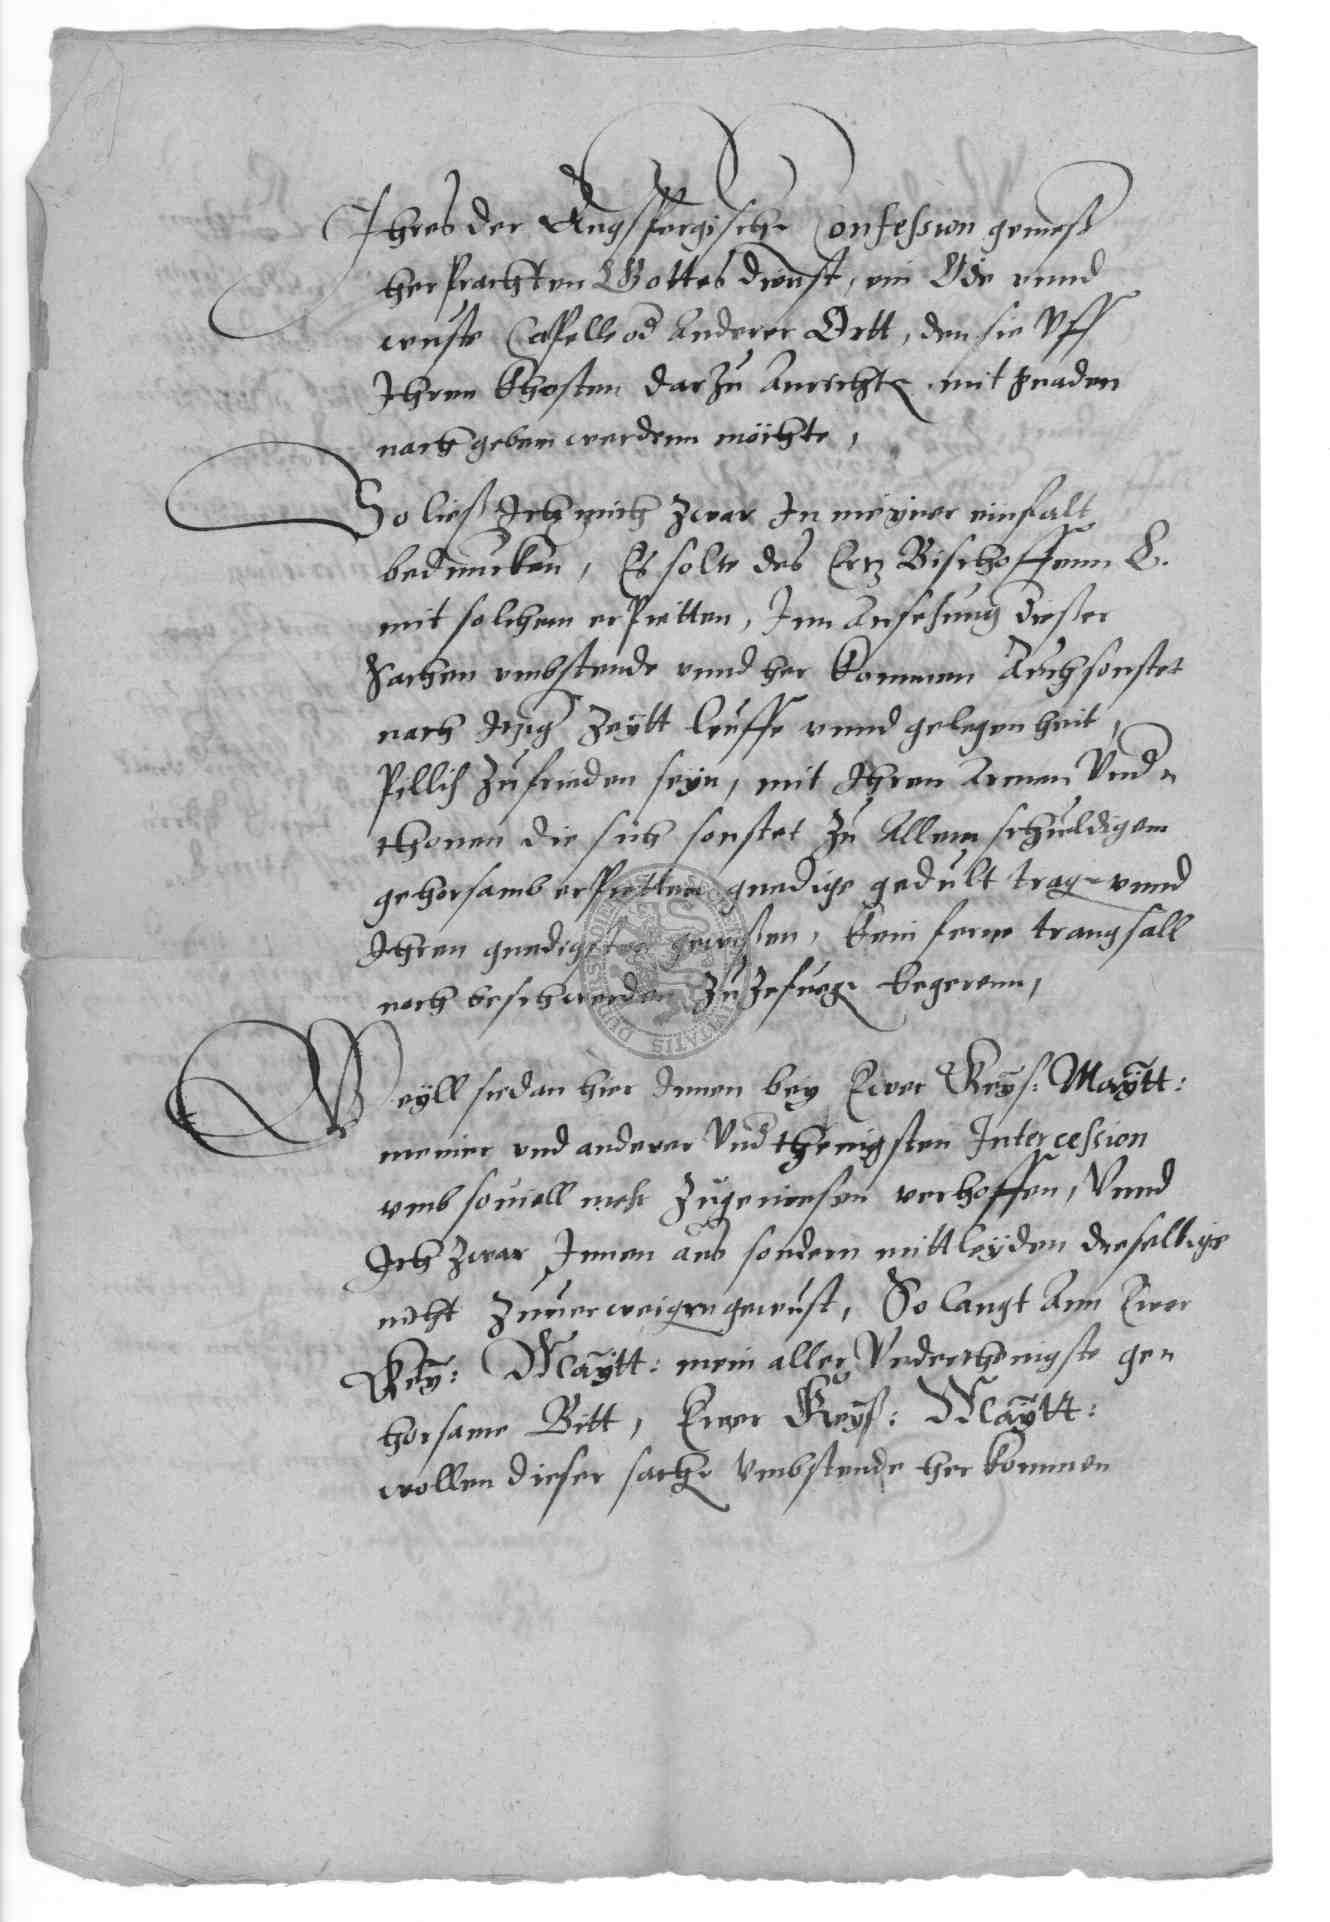 Ihres der Augspergische Confession gemeß
herprachten Gottes dienst, ein Öde vnnd
wuste Capelle od Anderer Ortt, den sie Vff
Ihren Khosten darzu Anricht mit gnaden
nach geben werdenn möchte,
So ließ Ich mich zwar In meyner einfalt
bedunken, Es solte des Ertz Bischoffenn L.
mit solchem erpietten, Inn Ansehung dießer
Sachen vmbstende vnnd her kommen Auch sonsten
nach Itzig Zeytt leuffe vnnd gelegenheit,
Pillich zufrieden seyn, mit Ihren Armen Vnd
thonen die sich sonsten zu Allem schuldigem
gehorsamb erpietten gnedige gedult trage vnnd
Ihren gnedigsten gewißen, kein ferne trangsall
noch beschwerden zuzefuege begerenn,
Weyll sie dan hier Innen bey Ewer Keys: Maytt:
meiner vnd anderer Vnd thenigsten Intercession
vmb souiell mehr zugeniesen verhoffen, Vnnd
Ich zwar Innen aus sondern mittleyden dieselbige
nicht zuuerweigrn gewust, So langt Ann Ewer
Key: Maytt: mein aller Vnderthenigste ge
horsame Bitt, Ewer Keyß: Maytt:
wollen dieser sache Vmbstende her kommen
DUISBURGENSIS UNIVERSITATIS